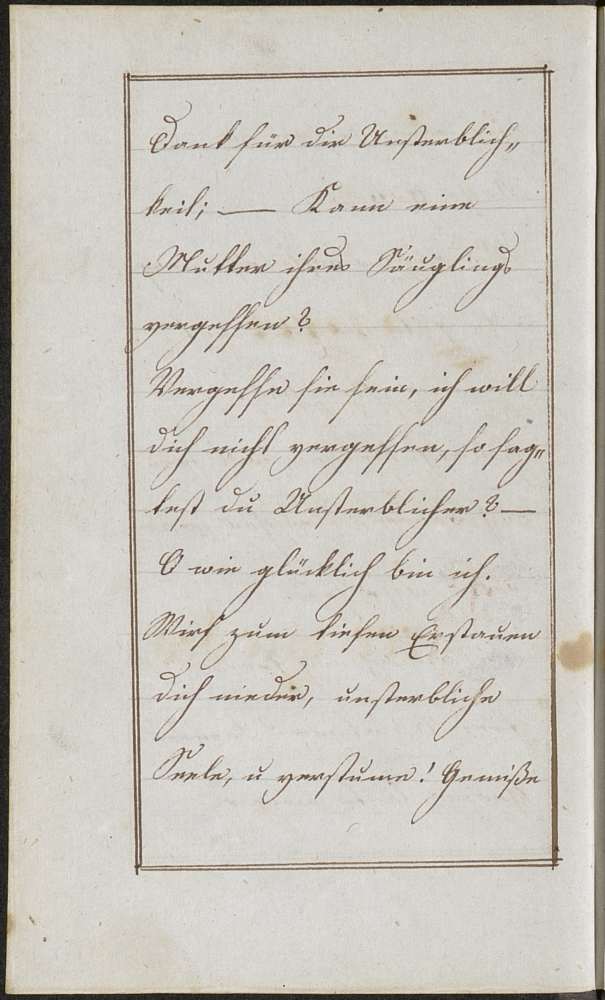 Dank für die Unsterblich„
keit; — Kann eine
Mutter ihres Säuglings
vergessen?
Vergesse sie sein, ich will
dich nicht vergessen, so sag„
test du Unsterblicher? —
O wie glücklich bin ich.
Wirf zum tiefen Erstauen
dich nieder, unsterbliche
Seele, u verstume! Genieße